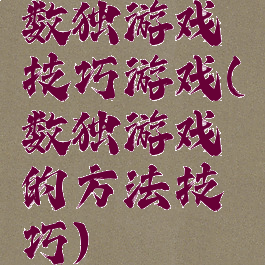 数独游戏
技巧游戏(
数独游戏
的方法技
巧)